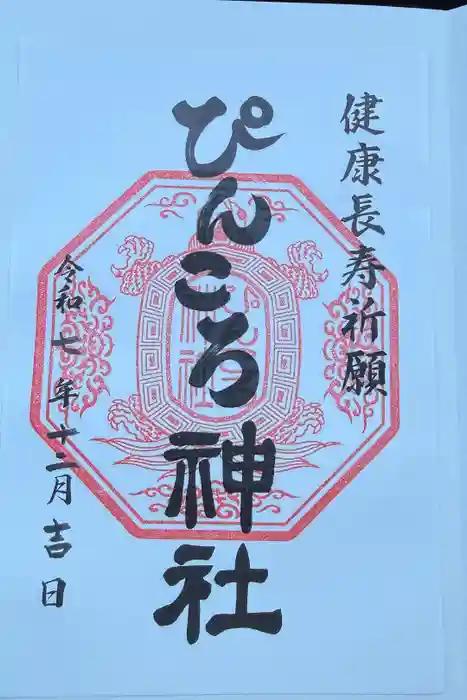 健康長寿祈願
ぴんころ神社
令和七年十二月吉日